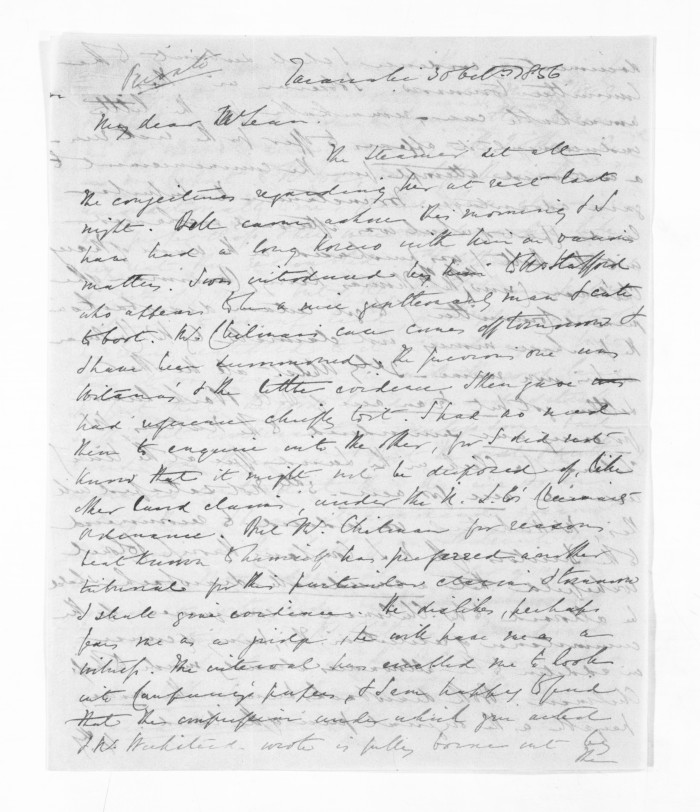 Private
Taranaki 30 Octr 1856
My dear McLean.
The Steamer set all
the conjectures regarding her at rest last
night. Bell came ashore this morning & I
have had a long korero with him on various
matters. I was introduced by him to Mr Stafford
who appears to be a nice gentlemanly man &
to boot. Mr Chilman's case comes off tomorrow &
I have been summoned. The previous one was
Witana's & the little evidence I then gave
had reference chiefly to it. I had no need
then to enquire into the other, for I did not
know that it might not be disposed of, like
other land claims, under the N. Z. Co's Claimants
Ordinance. But Mr. Chilman for reasons
best known to himself has preferred another
tribunal for this particular claim, & tomorrow
I shall give evidence. He dislikes, perhaps
fears me as a judge, he will have me as a
witness. The interval has enabled me to look
into Company's papers, & I am happy to find
that the impression under which you acted
& Mr. wrote is fully borne out by
the